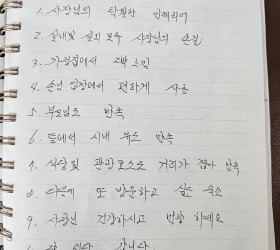 1. 사장님의 탁월한 인테리어
2. 실내및 실외 모두 사장님의 손길
3. 가정집에서
4. 손님 입장에서 편하게 사용
5. 부모님도 만족
6. 뜰에서 시내 만족
7. 식당 및 관광코스도 거리가 짧아 만족
8. 다음에 또 방문하고 싶은 숙소
9. 사장님 건강하시고 번창 하세요
잘 쉬다 갑니다.